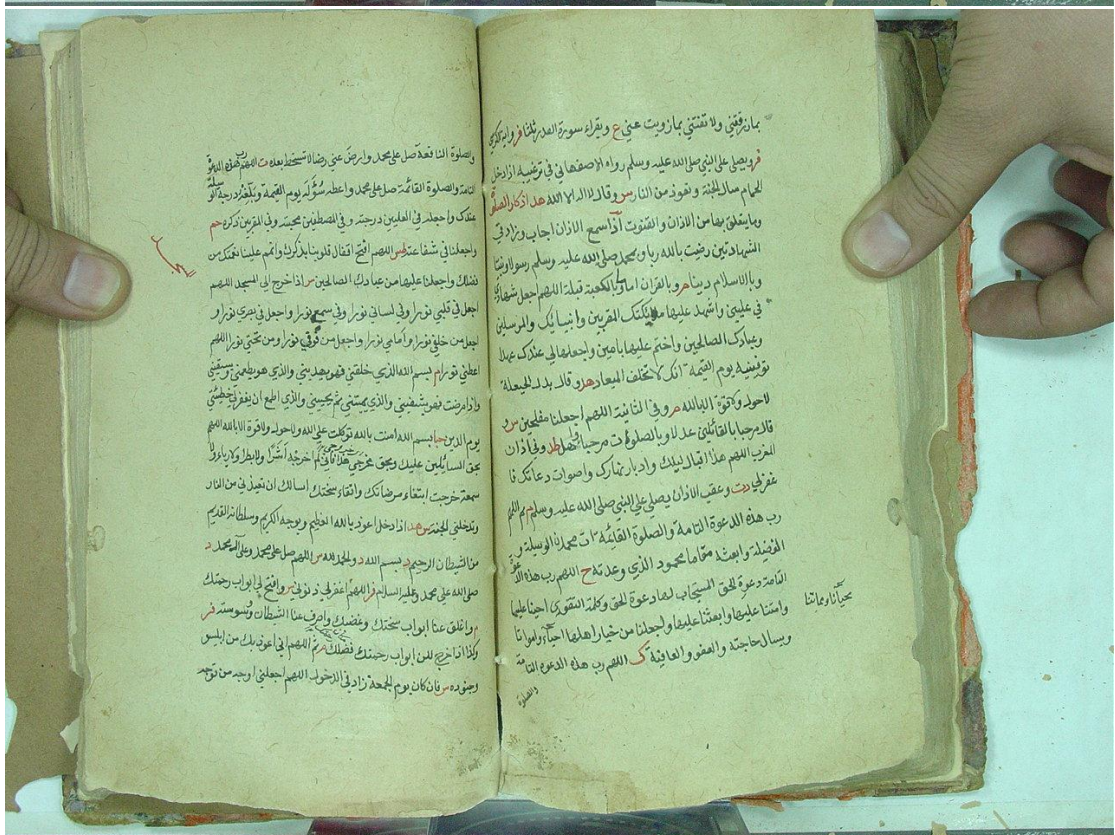 بما زرقتني ولا تفتني بما زويت عني ع ويقراء سورة القدر ثلثا فر واية الكرسي
فر ويصلي على النبي صلى الله عليه وسلم رواه الاصفهاني في ترغيبه اذا دخل
الحمام سال الجنة وتعوذ من النار س وقال لا اله الا الله هد اذكار الصلوة
وما يتعلق بها من الاذان والقنوت اذا سمع الاذان اجاب وزاد في
الشهادتين رضيت بالله ربا وبمحمد صلى الله عليه وسلم رسولا ونبيا
وبالاسلام دينا مر وبالقران اماما وبالكعبة قبلة اللهم اجعل شهادتي
في عليين واشهد عليها ملائكتك المقربين وانبيائك والمرسلين
وعبادك الصالحين واختم عليها بامين واجعلها لي عندك عهدا
توفينيه يوم القيمة انك لا تخلف الميعاد هد وقال بدل الحيعلة
لا حول ولا قوة الا بالله مر وفي الثانية اللهم اجعلنا مفلحين س و
قال مرحبا بالقائلين عدلا وبالصلوة مرحبا واهلا طد وفي اذان
المغرب اللهم هذا اقبال ليلك وادبار نهارك واصوات دعاتك فا
غفر لي دت وعقب الاذان يصلي على النبي صلى الله عليه وسلم م ثم اللهم
رب هذه الدعوة التامة والصلوة القائمة ات محمدا الوسيلة و
الفضيلة وابعثه مقاما محمود الذي وعدته ح اللهم رب هذه الدعوة
التامة دعوة الحق المستجاب لها دعوة الحق وكلمة التقوى احينا عليها
وامتنا عليها وابعثنا عليها واجعلنا من خيار اهلها احياء وامواتا
محيانا ومماتنا
ويسال حاجته والعفو والعافية ك اللهم رب هذه الدعوة التامة
والصلوة
والصلوة النافعة صل على محمد وارض عني رضا لا تسخط بعده ت اللهم رب هذه الدعوة
التامة والصلوة القائمة صل على محمد واعطه سؤله يوم القيمة وبلغه درجة الوسيلة
عندك واجعله في العليين درجته وفي المصطفين محبته وفي المقربين ذكره حم
واجعلنا في شفاعته طس اللهم افتح اقفال قلوبنا بذكرك واتمم علينا نعمتك من
فضلك واجعلنا عليها من عبادك الصالحين س اذا خرج الى المسجد اللهم
اجعل في قلبي نورا وفي لساني نورا وفي سمعي نورا واجعل في بصري نورا و
اجعل من خلفي نورا وامامي نورا واجعل من فوقي نورا ومن تحتي نورا اللهم
اعطني نورا م بسم الله الذي خلقني فهو يهديني والذي هو يطعمني ويسقيني
واذا مرضت فهو يشفيني والذي يميتني ثم يحييني والذي اطمع ان يغفر لي خطيئتي
يوم الدين حبا بسم الله امنت بالله توكلت على الله ولا حول ولا قوة الا بالله اللهم
بحق السائلين عليك وبحق مخرجي هذا فاني لم اخرجه أشرا ولا بطرا ولا رياء ولا
سمعة خرجت ابتغاء مرضاتك واتقاء سختك اسالك ان تعيذني من النار
وتدخلني الجنة س هد اذا دخل اعوذ بالله العظيم وبوجهه الكريم وسلطانه القديم
من الشيطان الرجيم د بسم الله د والحمد لله س اللهم صل على محمد وعلى آل محمد د
صلى الله على محمد وعليه السلام فر اللهم اغفر لي ذنوبي س وافتح لي ابواب رحمتك
م واغلق عنا ابواب سختك وغضبك واصرف عنا الشيطان ووسوسته فر
وكذا اذا خرج لكن ابواب رحمتك فضلك م ثم اللهم اني اعوذ بك من ابليس
وجنوده س فان كان يوم الجمعة زاد في الدخول اللهم اجعلني اوجه من توجه